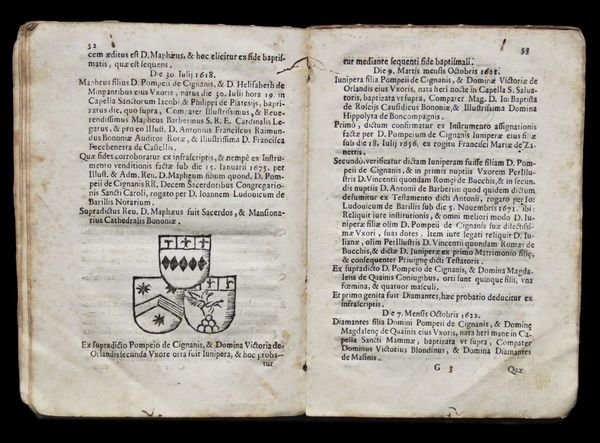 52
cem æditus est D. Maphæus, & hoc elicitur ex fide baptis-
matis, quæ est sequens.
Die 30. Iulij 1618.
Mapheus filius D. Pompeij de Cignanis, & D. Helisabeth de
Mingantibus eius Vxoris, natus die 30. Iulij hora 19. in
Capella Sanctorum Iacobi, & Philippi de Platesijs, bapti-
zatus die, quo supra, Compater Illustrissimus, & Reue-
rendissimus Mapheus Barberinus S. R. E. Cardinalis Le-
gatus, & pro eo Illust. D. Antonius Franciscus Raimun-
dus Bononiæ Auditor Rotæ, & Illustrissima D. Francisca
Facchenetta de Castellis.
Quæ fides corroboratur ex infrascriptis, & nempè ex Instru-
mento venditionis factæ sub die 15. Ianuarij 1675. per
Illust. & Adm. Reu. D. Mapheum filium quond. D. Pom-
peij de Cignanis RR. Decem Sacerdotibus Congregatio-
nis Sancti Caroli, rogato per D. Ioannem Ludouicum de
Barillis Notarium.
Supradictus Reu. D. Maphæus fuit Sacerdos, & Mansiona-
rius Cathedralis Bononiæ.
Ex supradicto Pompeio de Cignanis, & Domina Victoria de
Orlandis secunda Vxore orta fuit Iunipera, & hoc proba-
tur
53
tur mediante sequenti fide baptismali.
Die 9. Martis mensis Octobris 1621.
Iunipera filia Pompeij de Cignanis, & Dominæ Victoriæ de
Orlandis eius Vxoris, nata heri nocte in Capella S. Salua-
toris, baptizata vt supra, Compater Mag. D. Io: Baptista
de Roleijs Causidicus Bononiæ, & Illustrissima Domina
Hippolyta de Boncompagnis.
Primò, dictum confirmatur ex Instrumento assignationis
factæ per D. Pompeium de Cignanis Iuniperæ eius filiæ
sub die 18. Iulij 1656. ex rogitu Francisci Mariæ de Za-
nettis.
Secundò verificatur dictam Iuniperam fuisse filiam D. Pom-
peij de Cignanis, & in primis nuptijs Vxorem PerIllu-
stris D. Vincentij quondam Romei de Bucchis, & in secun-
dis nuptijs D. Antonij de Barberijs: quod quidem dictum
desumitur ex Testamento dicti Antonij, rogato per Io:
Ludouicum de Barillis sub die 5. Nouembris 1671. ibi:
Reliquit iure institutionis, & omni meliori modo D. Iu-
niperæ filiæ olim D. Pompeij de Cignanis suæ dilectissi-
mæ Vxori, suas dotes. Item iure legati reliquit D. Iu-
lianæ, olim PerIllustris D. Vincentij quondam Romæi de
Bucchis, & dictæ D. Iuniperæ ex primo Matrimonio filiæ,
& consequenter Priuignę dicti Testatoris.
Ex supradicto D. Pompeio de Cignanis, & Domina Magda-
lena de Quainis Coniugibus, orti sunt quinque filij, vna
fœmina, & quatuor masculi.
Et primo genita fuit Diamantes, hæc probatio deducitur ex
infrascriptis.
Die 7. Mensis Octobris 1622.
Diamantes filia Domini Pompeij de Cignanis, & Dominę
Magdalenę de Quainis eius Vxoris, nata heri mane in Ca-
pella Sancti Mammæ, baptizata vt supra, Compater
Dominus Victorius Blondinus, & Domina Diamantes
de Masinis.
G 3
Quæ